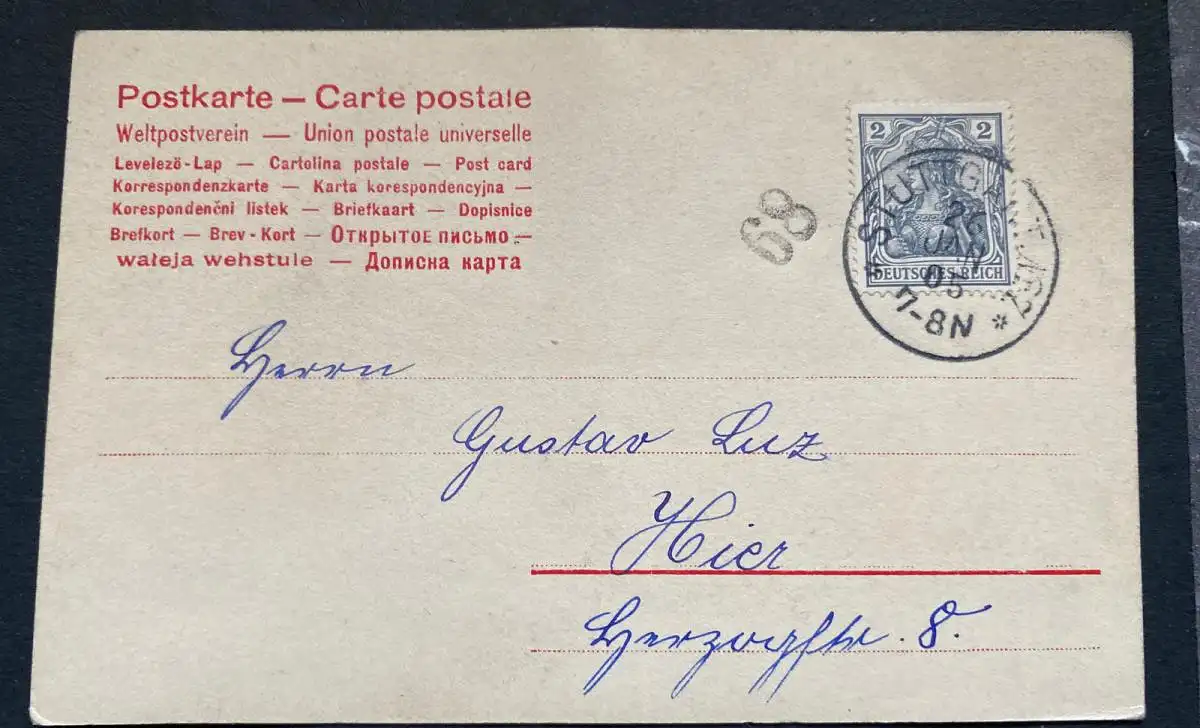 Postkarte — Carte postale
Weltpostverein — Union postale universelle
Levelezö-Lap — Cartolina postale — Post card
Korrespondenzkarte — Karta korespondencyjna —
Korespondenčni listek — Briefkaart — Dopisnice
Brefkort — Brev-Kort — Открытое письмо —
waleja wehstule — Дописна карта
2 2
DEUTSCHES REICH
68
STUTTGART
26 JAN 05
7-8N
Herrn
Gustav Luz
Hier
Herzogstr. 8.